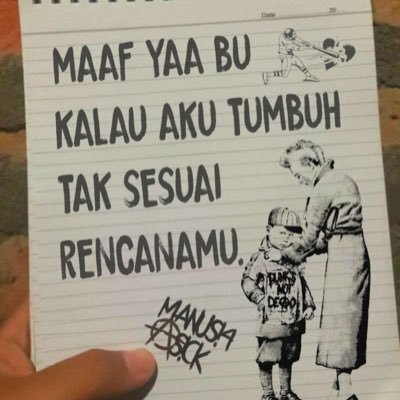 Date: 20
MAAF YAA BU
KALAU AKU TUMBUH
TAK SESUAI
RENCANAMU.
PUNK'S
NOT
DEAD
MANUSIA